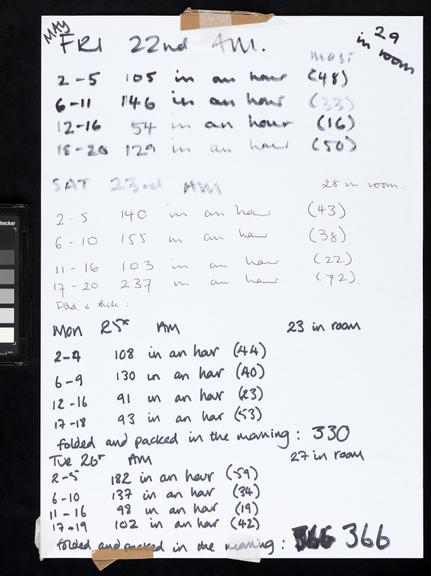 MAY
FRI 22nd AM.
29 in room
most
2-5 105 in an hour (48)
6-11 146 in an hour (33)
12-16 54 in an hour (16)
18-20 129 in an hour (50)
SAT 23rd AM 28 in room.
2-5 140 in an hour (43)
6-10 155 in an hour (38)
11-16 103 in an hour (22)
17-20 237 in an hour (72).
Mon 25th AM 23 in room
2-4 108 in an hour (44)
6-9 130 in an hour (40)
12-16 91 in an hour (23)
17-18 93 in an hour (53)
folded and packed in the morning: 330
Tue 26th AM 27 in room
2-5 182 in an hour (59)
6-10 137 in an hour (34)
11-16 98 in an hour (19)
17-19 102 in an hour (42)
folded and packed in the morning: 366 366